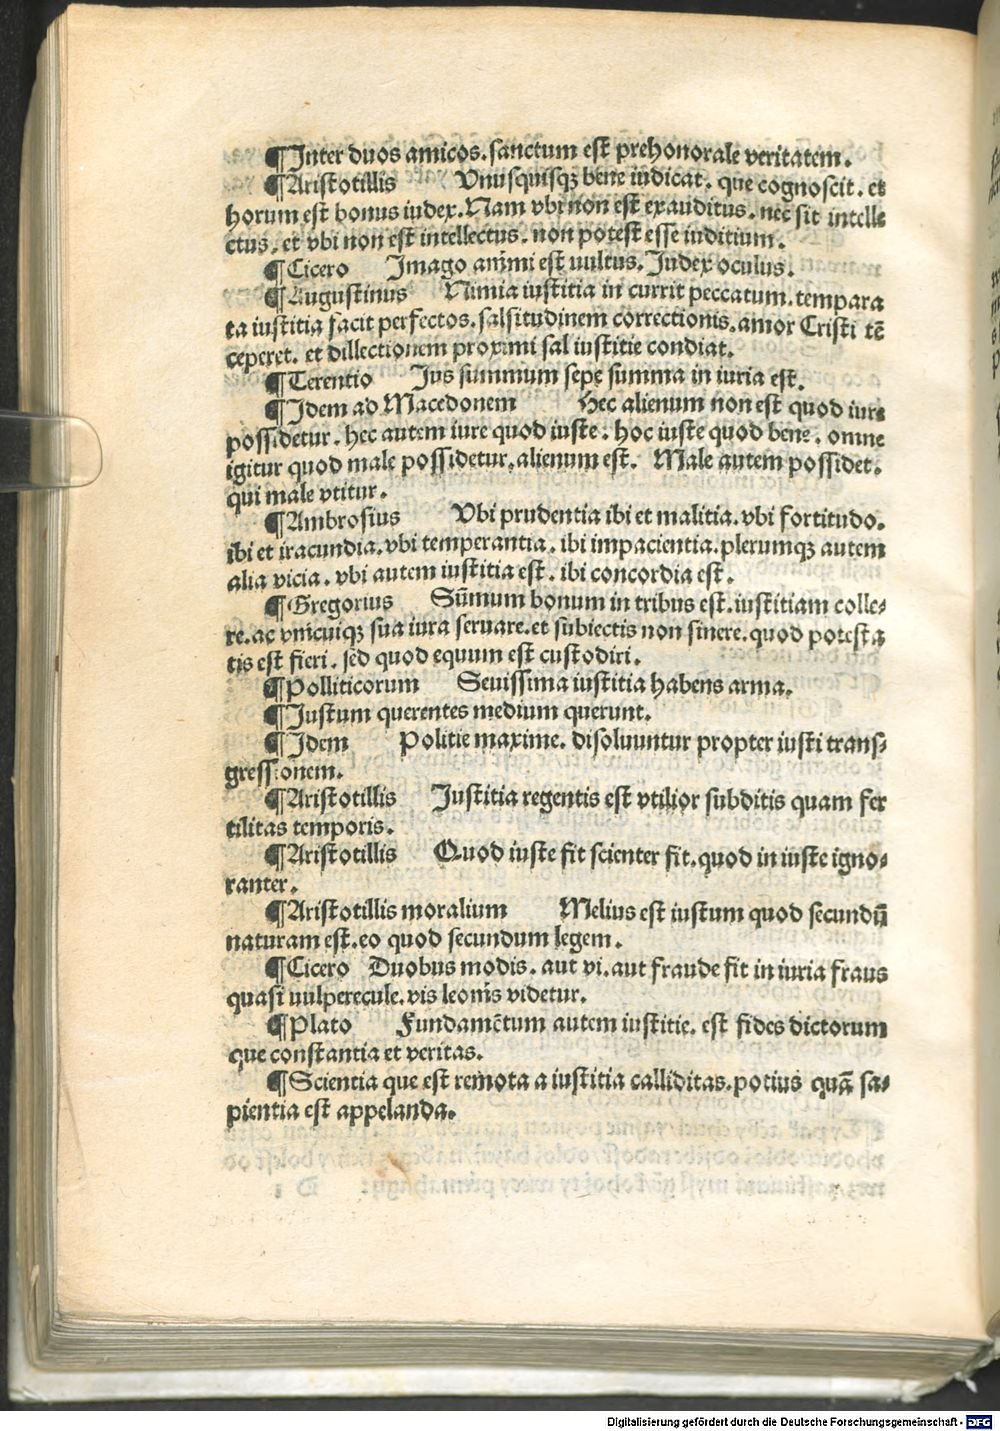 ¶Inter duos amicos. sanctum est prehonorale veritatem.
¶Aristotillis Vnusquisqꝫ bene iudicat. que cognoscit. et
horum est bonus iudex. Nam vbi non est exauditus. nec sit intelle
ctus. et vbi non est intellectus. non potest esse iuditium.
¶Cicero Imago animi est uultus. Iudex oculus.
¶Augustinus Nimia iustitia in currit peccatum. tempara
ta iustitia facit perfectos. salsitudinem correctionis. amor Cristi tē
ceperet. et dillectionem proximi sal iustitie condiat.
¶Terentio Ius summum sepe summa in iuria est.
¶Idem ad Macedonem Hec alienum non est quod iure
possidetur. hec autem iure quod iuste: hoc iuste quod bene. omne
igitur quod male possidetur. alienum est. Male autem possidet.
qui male vtitur.
¶Ambrosius Vbi prudentia ibi et malitia. vbi fortitudo.
ibi et iracundia. vbi temperantia. ibi impacientia. plerumqꝫ autem
alia vicia. vbi autem iustitia est. ibi concordia est.
¶Gregorius Sūmum bonum in tribus est. iustitiam colle⸗
re. ac vnicuiqꝫ sua iura seruare. et subiectis non sinere. quod potesta
tis est fieri. sed quod equum est custodiri.
¶Polliticorum Seuissima iustitia habens arma.
¶Iustum querentes medium querunt.
¶Idem Politie maxime. disoluuntur propter iusti trans⸗
gressionem.
¶Aristotillis Iustitia regentis est vtilior subditis quam fer
tilitas temporis.
¶Aristotillis Quod iuste fit scienter fit. quod in iuste igno⸗
ranter.
¶Aristotillis moralium Melius est iustum quod secundū
naturam est. eo quod secundum legem.
¶Cicero Duobus modis. aut vi. aut fraude fit in iuria fraus
quasi uulperecule. vis leonis videtur.
¶Plato Fundamētum autem iustitie. est fides dictorum
que constantia et veritas.
¶Scientia que est remota a iustitia calliditas. potius quā sa⸗
pientia est appelanda.
Digitalisierung gefördert durch die Deutsche Forschungsgemeinschaft - DFG